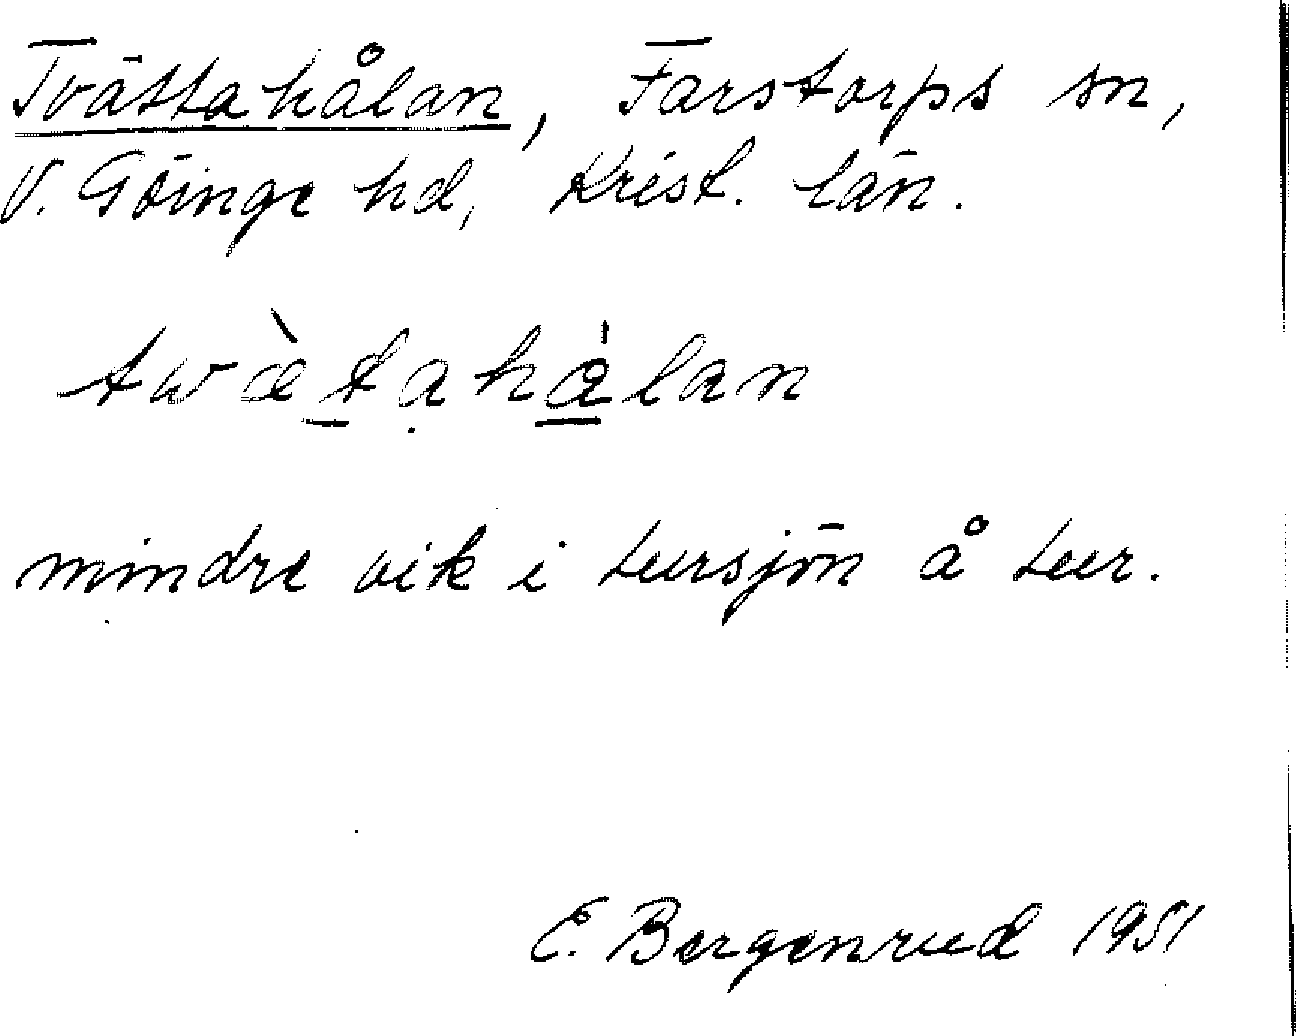 Tvättahålan, Farstorps sn,
V. Göinge hd, Krist. län.
twæ̀tạhɑ̀lan
mindre vik i Lursjön å Lur.
E. Bergenrud 1951